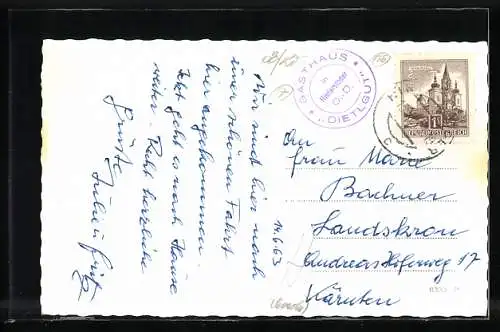 Wir sind hier nach
einer schönen Fahrt
hier angekommen.
Jetzt geht es nach Hause
weiter. Recht herzliche
Grüße
14.6.63
GASTHAUS
"DIETLGUT"
in
Hinterstoder
O.-Ö.
REPUBLIK ÖSTERREICH
An
Frau Marie
Bachner
Landskron
Andreas Hoferweg 17
Kärnten